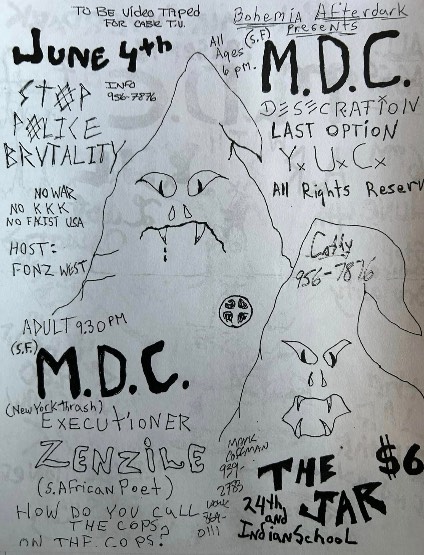 TO BE VIDEO TAPED
FOR CABLE T.V.
Bohemia Afterdark
Presents
JUNE 4th
All
Ages
6 pm.
(S.F.)
M.D.C.
INFO
956-7876
STOP
POLICE
BRVTALITY
DESECRATION
LAST OPTION
Y. U. C.
All Rights Reserv
NO WAR
NO KKK
NO FACIST USA
HOST:
FONZ WEST
Cathy
956-7876
ADULT 9:30 PM
(S.F.)
M.D.C.
(New York Thrash)
EXECUTIONER
ZENZILE
(S. African Poet)
HOW DO YOU CALL
THE COPS
ON THE COPS?
MARK
COFFMAN
2783
WORK
0111
THE
JAR
$6
24th
and
Indian School